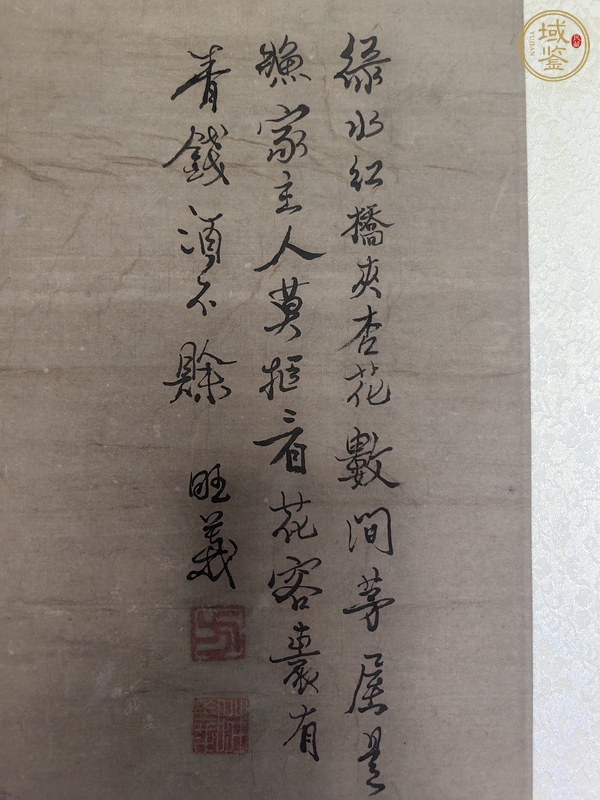 綠水紅橋夾杏花數間茅屋是
漁家主人莫拒看花客囊有
青錢酒不賖
旺義
域鉴
YUJIAN